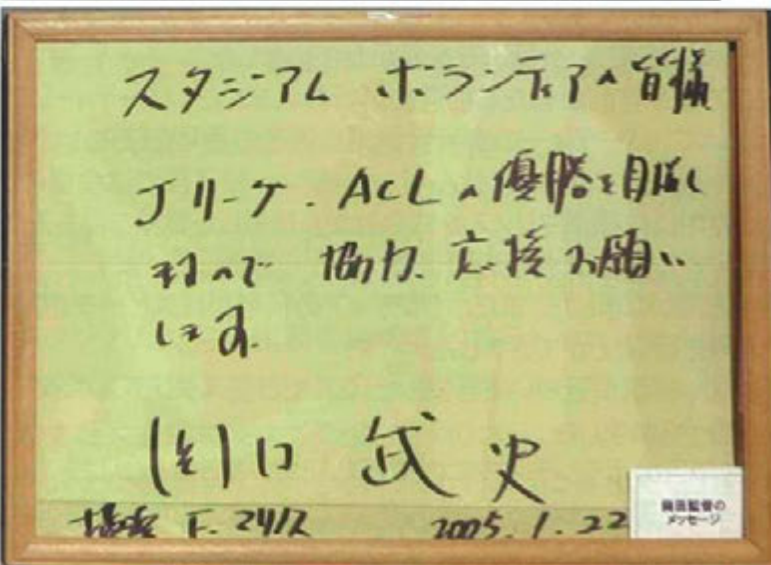 スタジアム ボランティアの皆様
Jリーグ、ACLの優勝を目指し
ますので 協力、応援お願い
します。
岡田 武史
横浜 F.マリノス 2005.1.22
岡田監督の
メッセージ